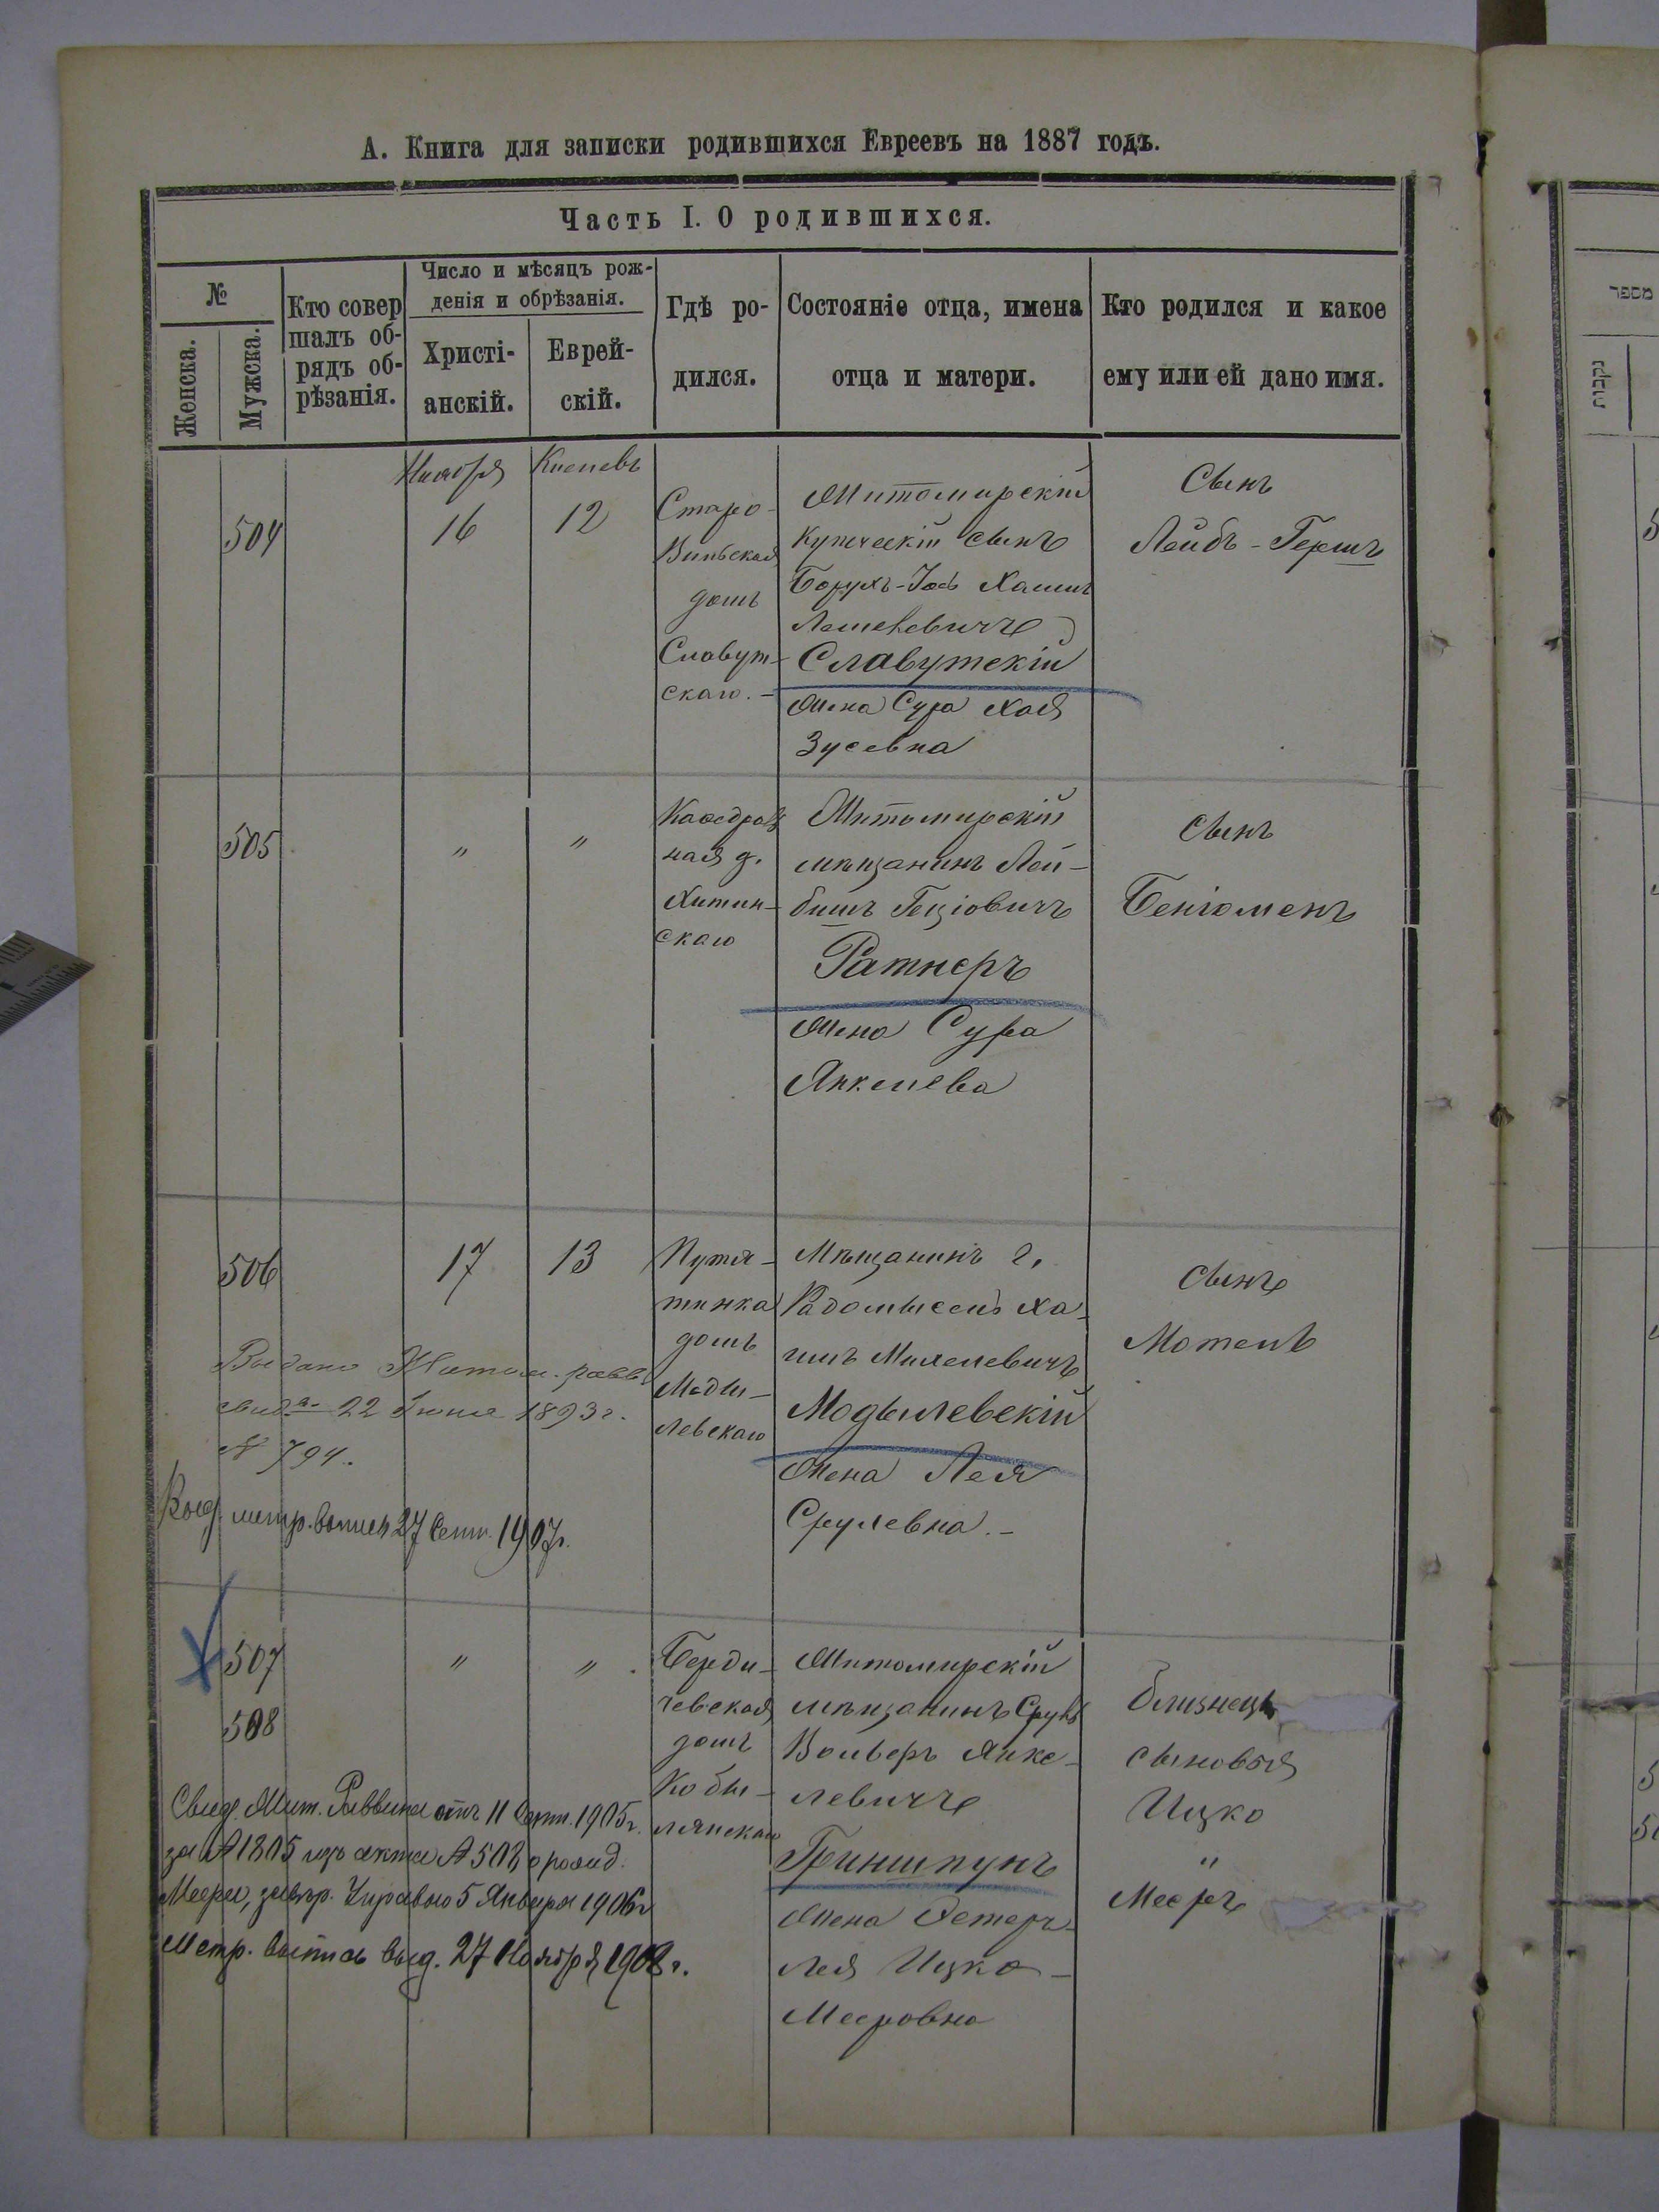 А. Книга для записки родившихся Евреевъ на 1887 годъ.
Часть I. О родившихся.
№
Женска.
Мужска.
Кто совер
шалъ об-
рядъ об-
рѣзанія.
Число и мѣсяцъ рож-
денія и обрѣзанія.
Христі-
анскій.
Еврей-
скій.
Гдѣ ро-
дился.
Состояніе отца, имена
отца и матери.
Кто родился и какое
ему или ей дано имя.
504
Ноября
16
Кислевъ
12
Старо-
Вильская
домъ
Славут-
скаго.-
Житомирскій
купческій сынъ
Борухъ-Іось Хаимъ
Славутскій
Жена Сура Хая
Зусевна
Сынъ
Лейбъ-Гершъ
505
"
"
Каѳедраль
ная д.
Хитин-
скаго
Житомирскій
мѣщанинъ Лей-
бишъ Геціовичъ
Ратнеръ
Жена Сура
Янкелева
Сынъ
Беніоменъ
506
17
13
Путя-
тинка
домъ
Моды-
левскаго
Мѣщанинъ г.
Радомысль Ха-
имъ Михелевичъ
Модылевскій
Жена Лея
Срулевна.-
Сынъ
Мотель
Выдано Житом. равв.
свид. 22 Іюня 1893 г.
№ 794.
Выд. метр. выпись 27 Сент. 1907г.
507
508
"
"
Берди-
чевская
домъ
Кобы-
лянскаго
Житомирскій
мѣщанинъ Сруль
Вольфъ Янке-
левичъ
Гриншпунъ
Жена Эстеръ-
Лея Ицко-
Мееровна
близнецы
сыновья
Ицко
"
Мееръ
Свид. Жит. Раввина отъ 11 Сент. 1905г.
за № 1805 изъ акта № 508 о рожд.
Меера, завѣр. Управою 5 Января 1906г
Метр. выпись выд. 27 Ноября 1908 г.
מספר
נקבות